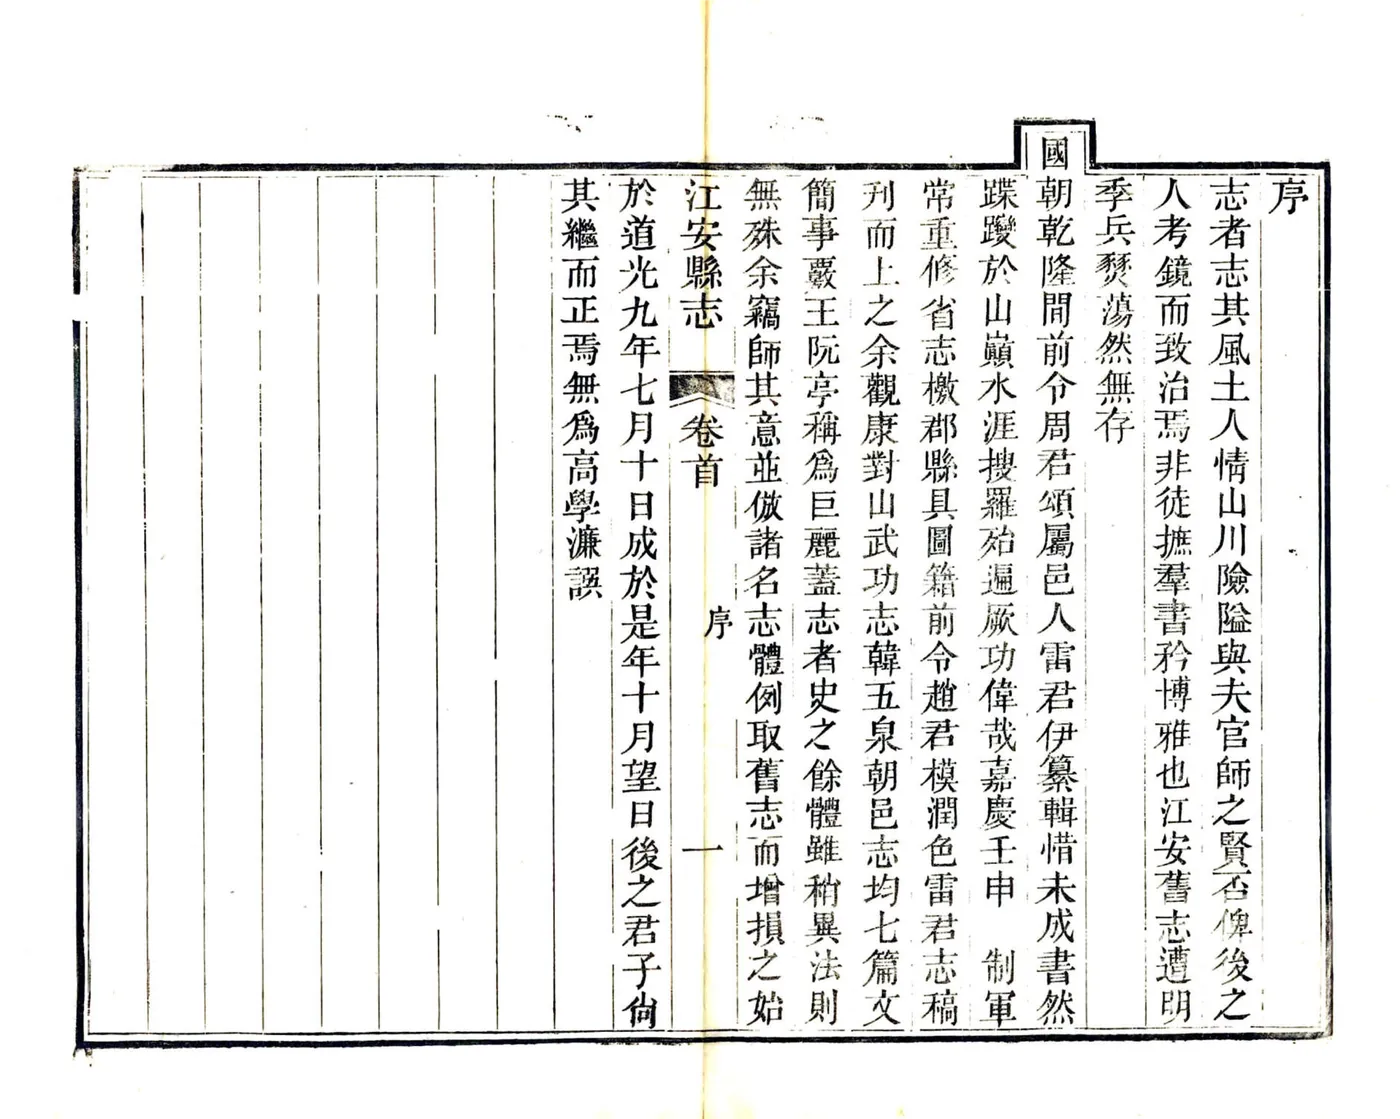 序
志者志其風土人情山川險隘與夫官師之賢否俾後之
人考鏡而致治焉非徒摭羣書矜博雅也江安舊志遭明
季兵燹蕩然無存
國朝乾隆間前令周君頌屬邑人雷君伊纂輯惜未成書然
蹀躞於山巔水涯搜羅殆遍厥功偉哉嘉慶壬申　制軍
常重修省志檄郡縣具圖籍前令趙君模潤色雷君志稿
刋而上之余觀康對山武功志韓五泉朝邑志均七篇文
簡事覈王阮亭稱爲巨麗蓋志者史之餘體雖稍異法則
無殊余竊師其意並倣諸名志體例取舊志而增損之始
江安縣志　卷首　序　一
於道光九年七月十日成於是年十月望日後之君子尙
其繼而正焉無爲高學濂譔